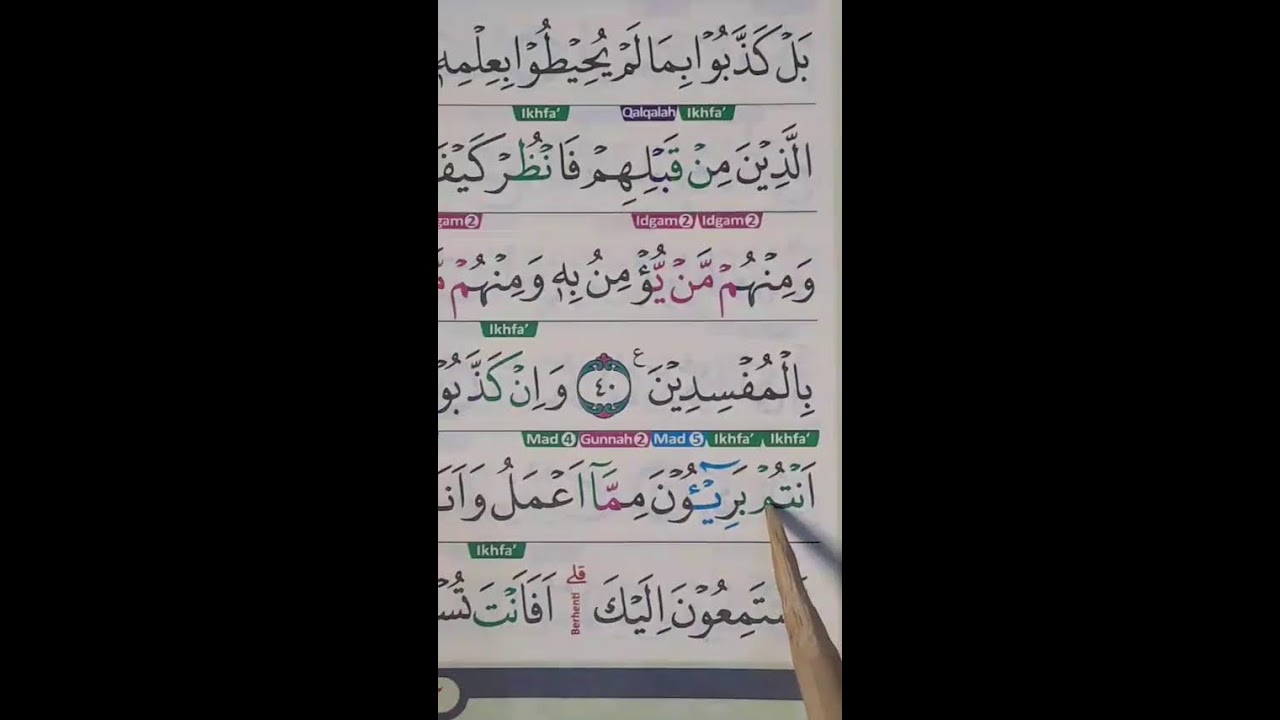 بَلْ كَذَّبُوْا بِمَا لَمْ يُحِيْطُوْا بِعِلْمِهٖ
Ikhfa’ Qalqalah Ikhfa’
الَّذِيْنَ مِنْ قَبْلِهِمْ فَانْظُرْ كَيْفَ
gam 2 Idgam 2 Idgam 2
وَمِنْهُمْ مَّنْ يُّؤْمِنُ بِهٖ وَمِنْهُمْ مَّ
Ikhfa’
بِالْمُفْسِدِيْنَ ࣖ ٤٠ وَاِنْ كَذَّبُوْ
Mad 4 Gunnah 2 Mad 5 Ikhfa’ Ikhfa’
اَنْتُمْ بَرِيْۤـُٔوْنَ مِمَّآ اَعْمَلُ وَاَنَ
Ikhfa’
سْتَمِعُوْنَ اِلَيْكَ ۗ Berhenti اَفَاَنْتَ تُسْ